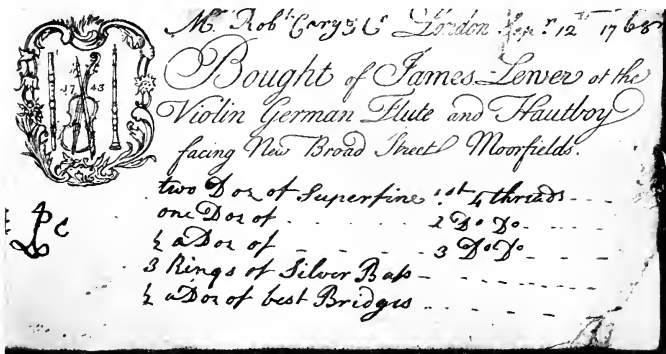 Mr. Robt. Cary & Co. London Sepr. 12th 1768
17 43
Bought of James Lewer at the
Violin German Flute and Hautboy
facing New Broad Street Moorfields.
two Doz of Superfine 1st 4 threads
one Doz of 2 Do Do
½ a Doz of 3 Do Do
PC
3 Rings of Silver Bass
½ a Doz of best Bridges